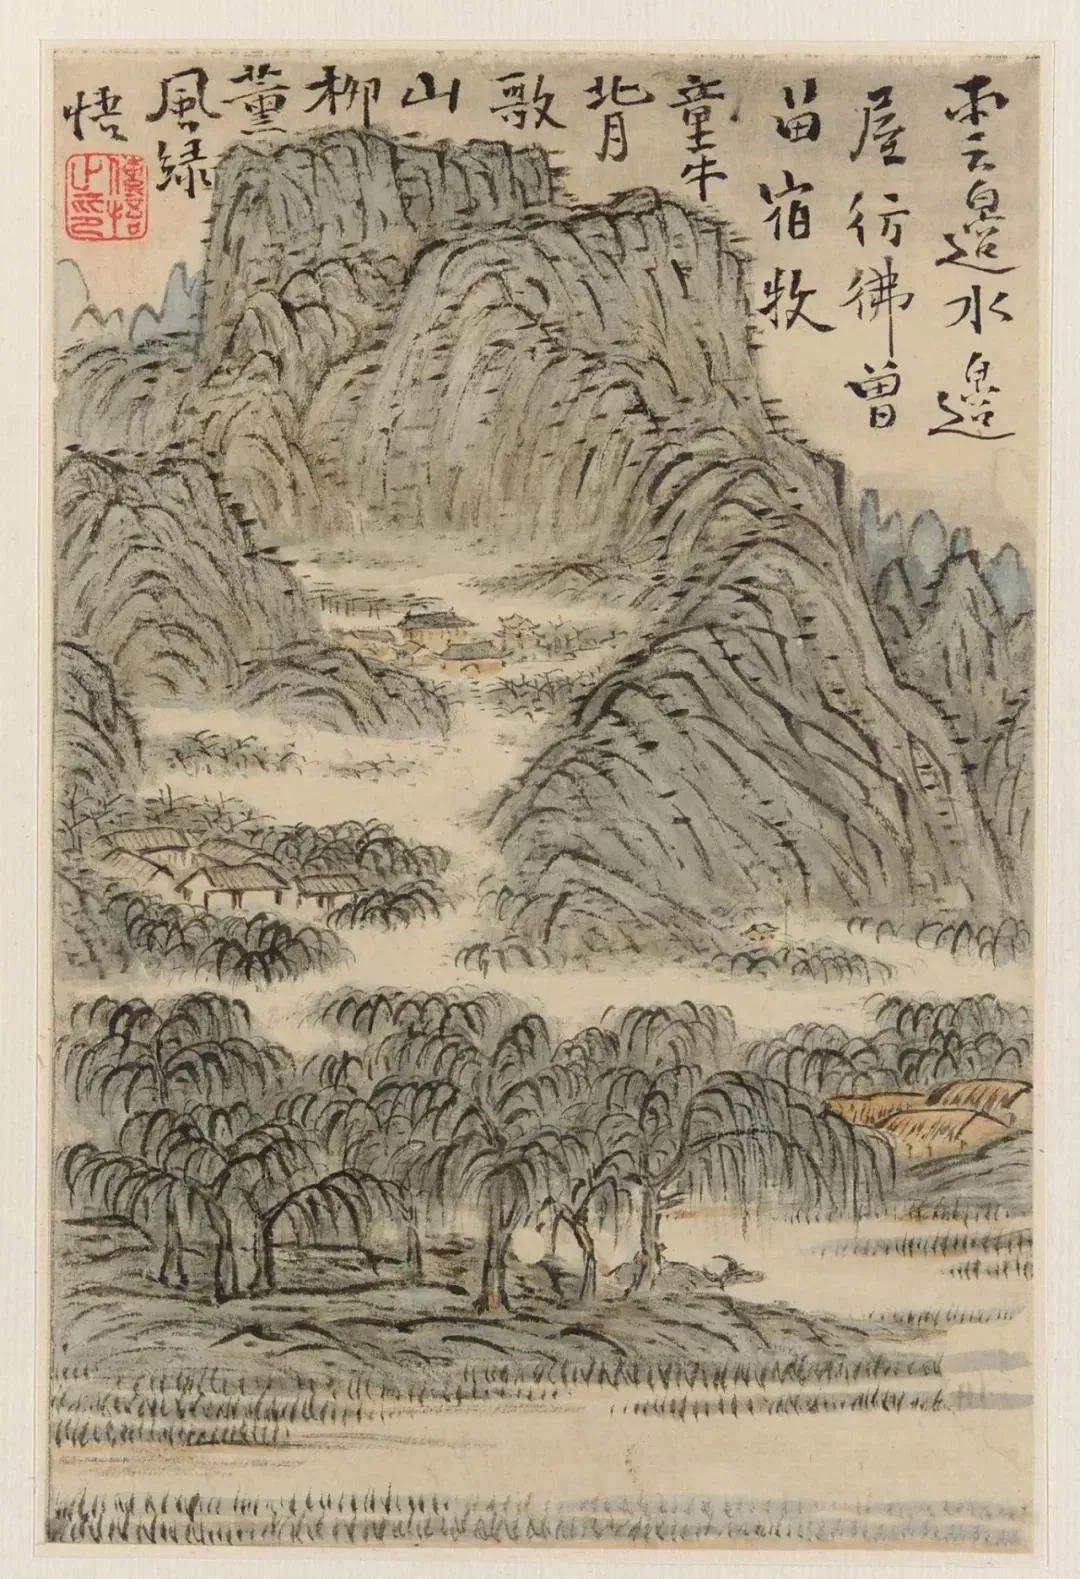 雲邊水邊
屋彷彿曾
畄宿牧
童牛
背
歌
山
柳
薰
風緑
悟